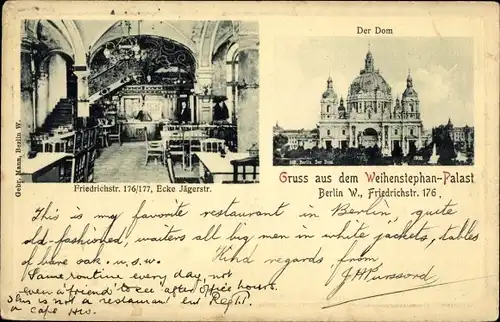 Der Dom
Gebr. Mann, Berlin W.
Friedrichstr. 176/177, Ecke Jägerstr.
Berlin Der Dom
Gruss aus dem Weihenstephan-Palast
Berlin W., Friedrichstr. 176.
This is my favorite restaurant in Berlin, quite
old-fashioned, waiters all big men in white jackets, tables
of bare oak. u.s.w. Kind regards from
Same routine every day, not
even a 'friend' to see after office hours.
This is not a restaurant but
a cafe